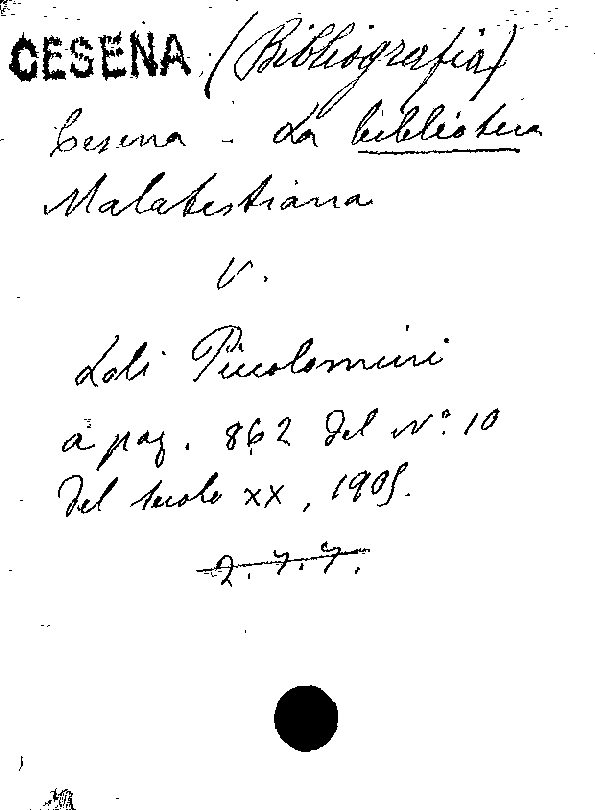 CESENA (Bibliografia)
Cesena - La biblioteca
Malatestiana
V.
Loli Piccolomini
a pag. 862 del N.º 10
del secolo XX, 1905.
2.7.7.